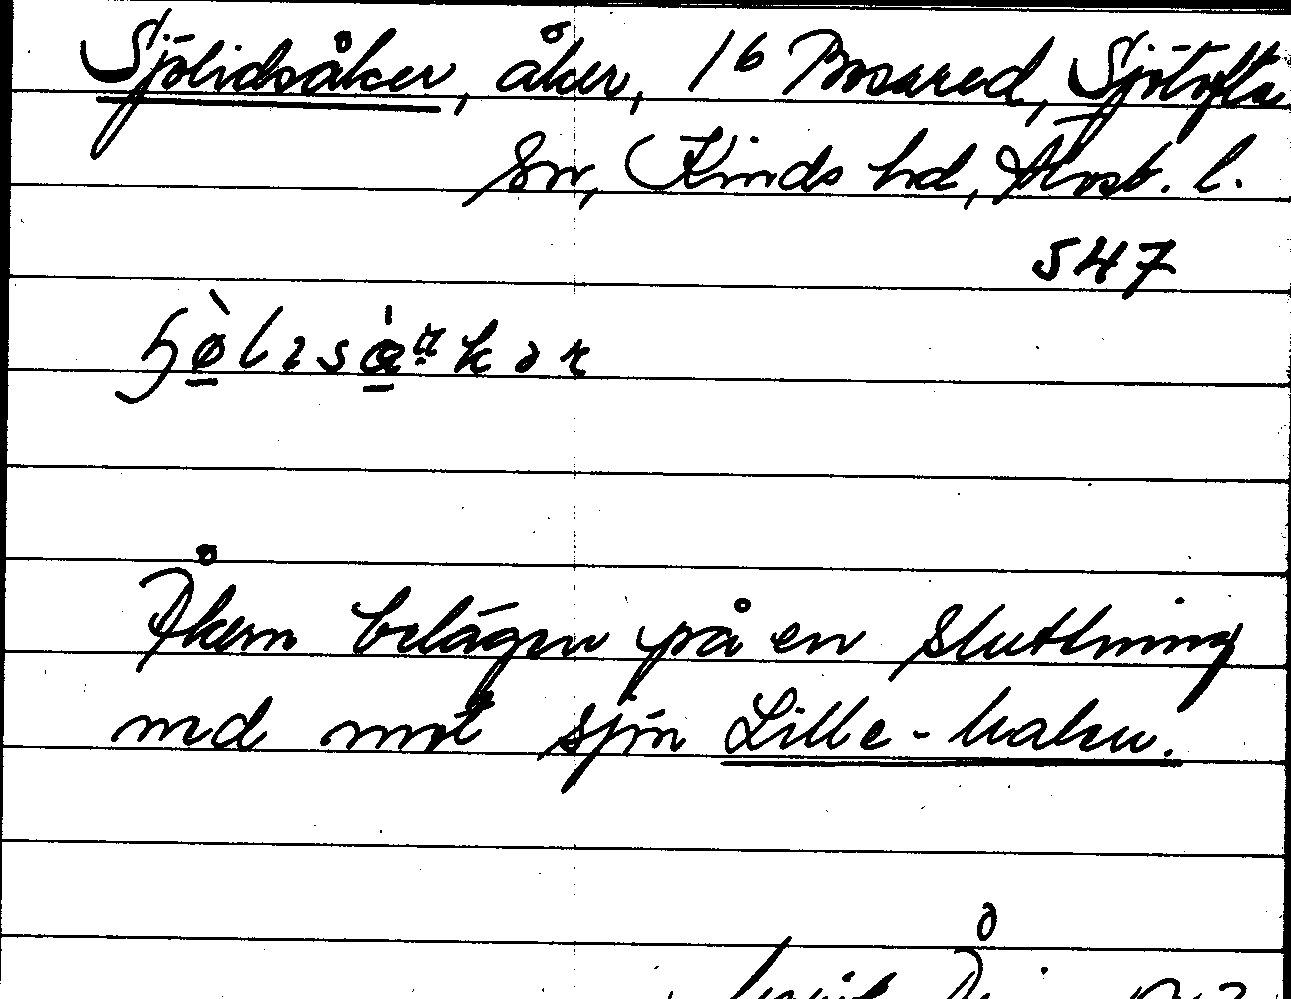 Sjölidsåker, åker, 16 Bosared, Sjötofta
sn, Kinds hd, Älvsb. l.
547
Åkern belägen på en sluttning
ned mot sjön Lille-halen.